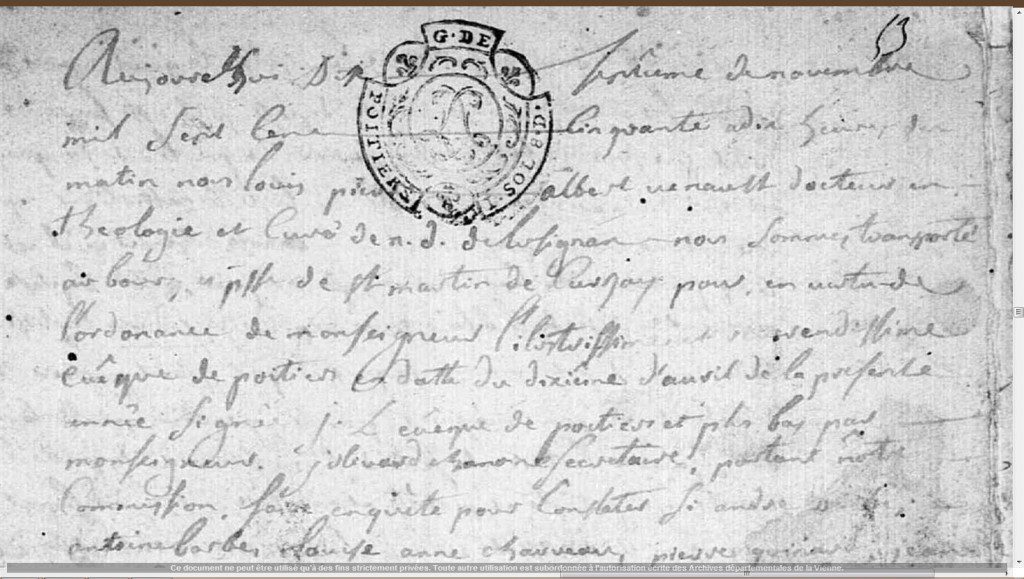 53
G. DE
POITIERS
1. SOL 8. D.
Aujourdhuy Dix septieme de novembre
mil sept cent cinquante a dix heures du
matin nous louis pierre albert venault docteur en
theologie et Curé de n. d. de lusignan nous sommes transporté
au bourg et psse de st martin de Curzay pour, en vertu de
l'ordonance de monseigneur l'ilustrissime et reverendissime
Evêque de poitiers en datte du dixième d'avril de la presente
année signé j. L evêque de poitiers et plus bas par
monseigneur. chanoine secretaire, portant nôtre
Commission, faire enquête pour Constater si andré
antoine barbe, louise anne charveau, pierre jean
Ce document ne peut être utilisé qu'à des fins strictement privées. Toute autre utilisation est subordonnée à l'autorisation écrite des Archives départementales de la Vienne.